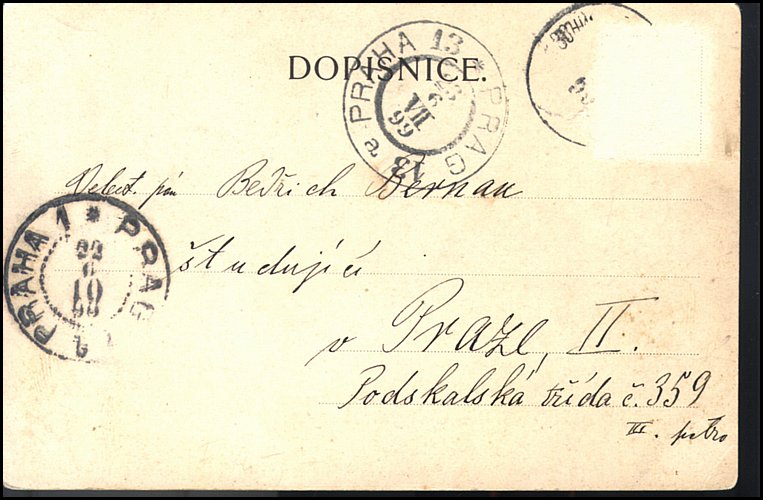 DOPISNICE.
PRAHA 13 * PRAG 13
VII
99
Velect. pán Bedřich Bernau
študující
v Praze, II.
Podskalská třída č. 359
III. patro
PRAHA 1 * PRAG